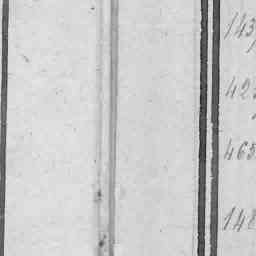 143
42
465
148